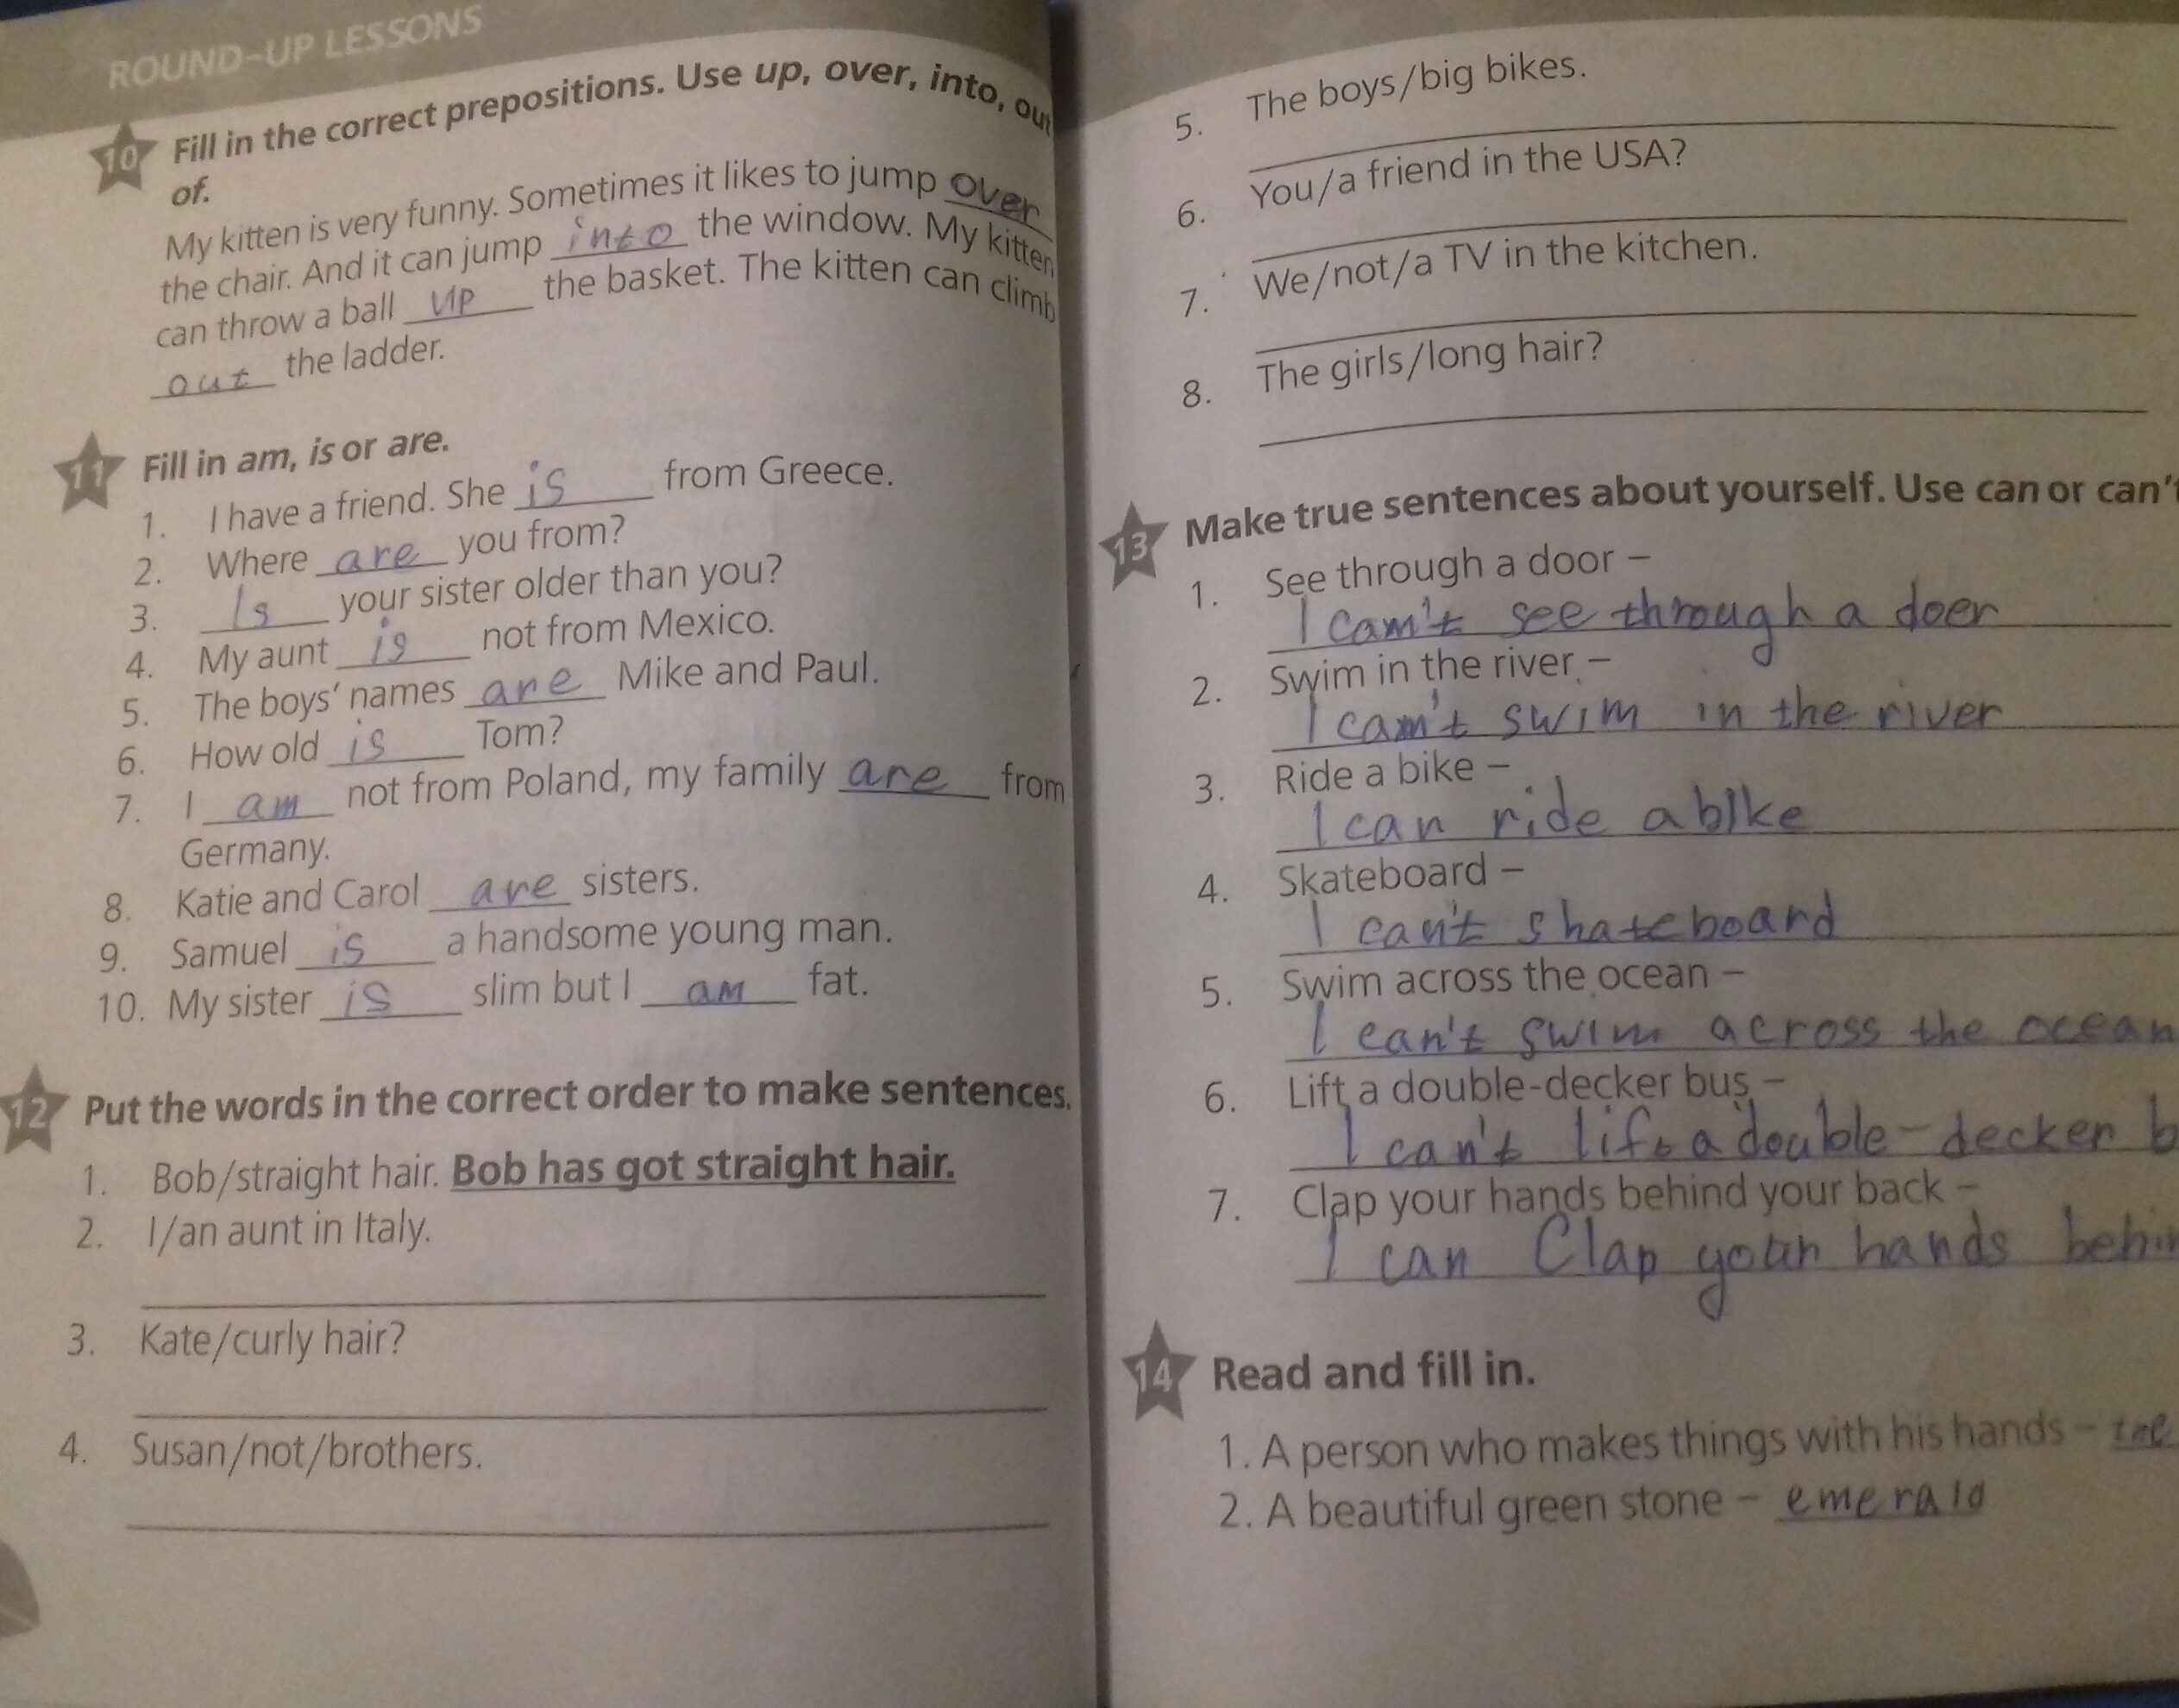 ROUND-UP LESSONS
10 Fill in the correct prepositions. Use up, over, into, out
of.
My kitten is very funny. Sometimes it likes to jump over
the chair. And it can jump into the window. My kitten
can throw a ball up the basket. The kitten can climb
out the ladder.
11 Fill in am, is or are.
1. I have a friend. She is from Greece.
2. Where are you from?
3. Is your sister older than you?
4. My aunt is not from Mexico.
5. The boys' names are Mike and Paul.
6. How old is Tom?
7. I am not from Poland, my family are from
Germany.
8. Katie and Carol are sisters.
9. Samuel is a handsome young man.
10. My sister is slim but I am fat.
12 Put the words in the correct order to make sentences.
1. Bob/straight hair. Bob has got straight hair.
2. I/an aunt in Italy.
3. Kate/curly hair?
4. Susan/not/brothers.
5. The boys/big bikes.
6. You/a friend in the USA?
7. We/not/a TV in the kitchen.
8. The girls/long hair?
13 Make true sentences about yourself. Use can or can't
1. See through a door –
I cam't see through a doer
2. Swim in the river –
I cam't swim in the river
3. Ride a bike –
I can ride a bike
4. Skateboard –
I can't shateboard
5. Swim across the ocean –
I can't swim across the ocean
6. Lift a double-decker bus –
I can't lift a double-decker b
7. Clap your hands behind your back –
I can Clap your hands behin
14 Read and fill in.
1. A person who makes things with his hands –
2. A beautiful green stone – emerald